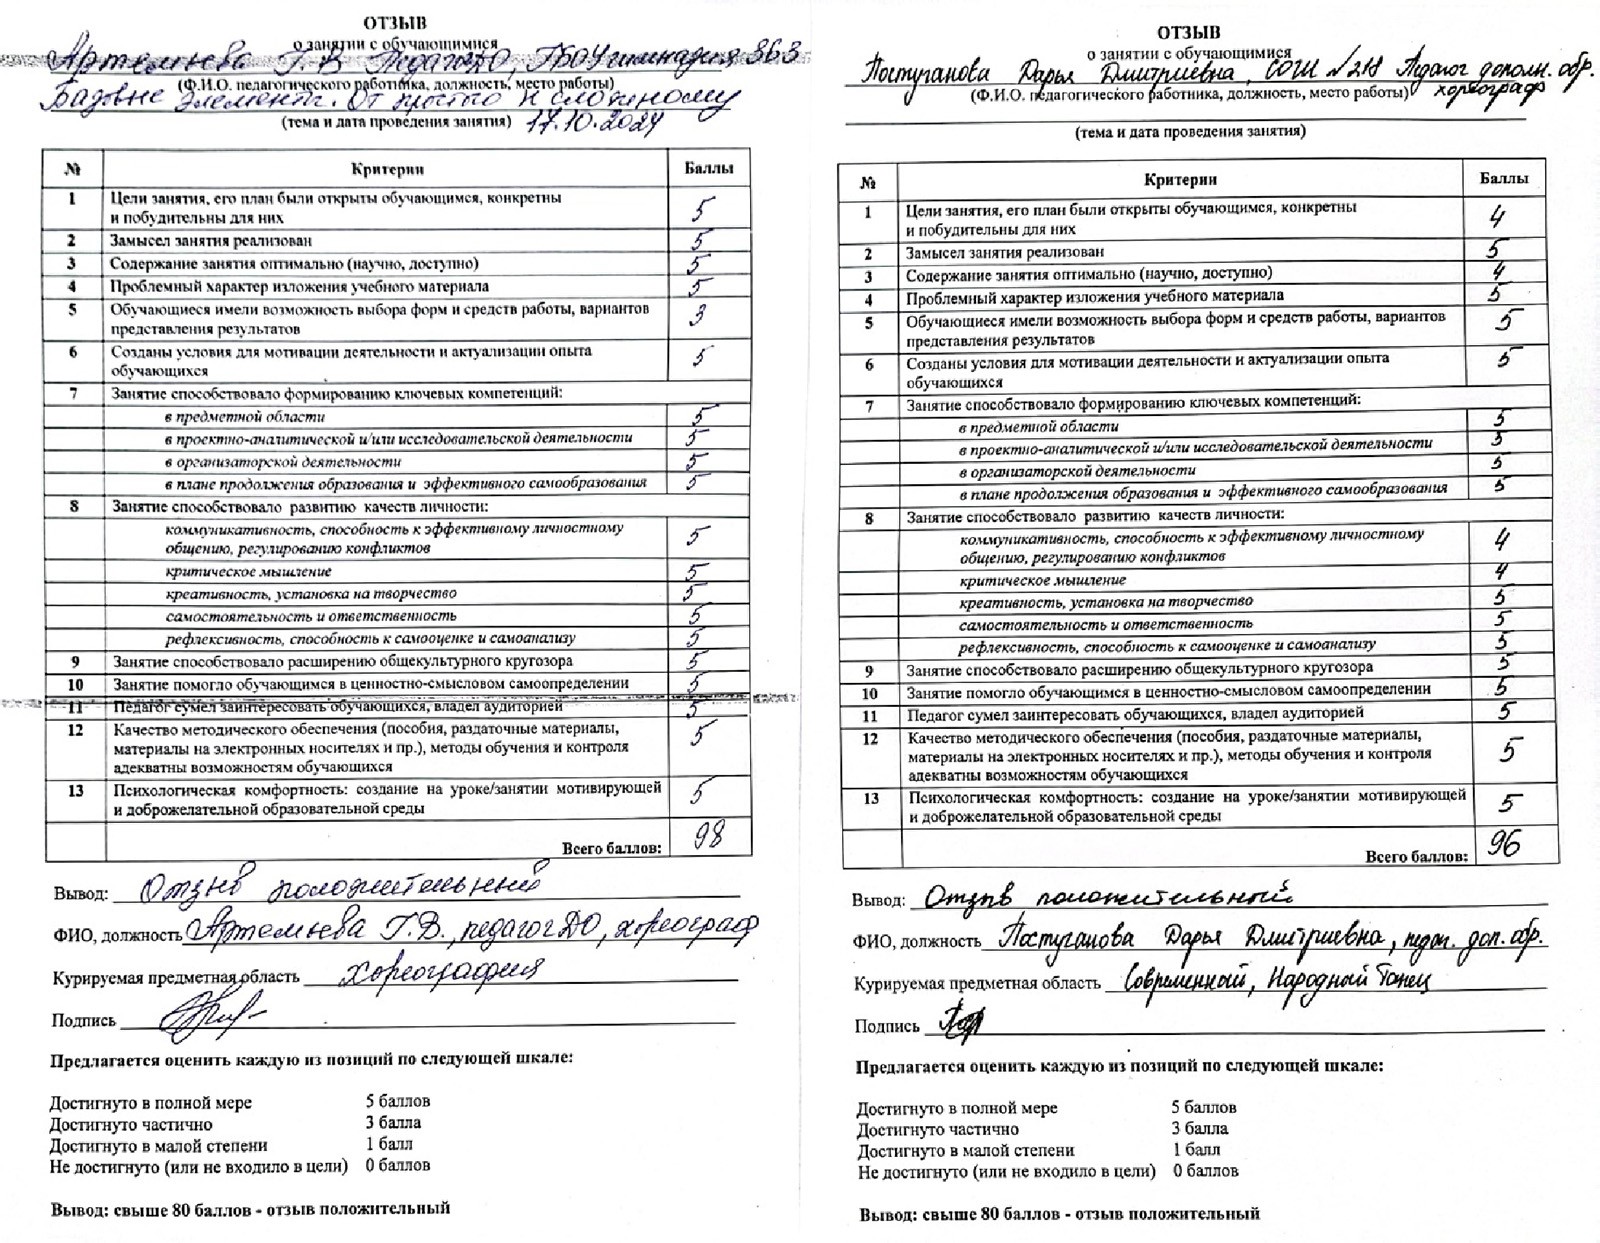 ОТЗЫВ
о занятии с обучающимися
Артемьева Г.В Педагог ДО, ГБОУ гимназия 363
(Ф.И.О. педагогического работника, должность, место работы)
Базовые элементы. От просто к сложному
(тема и дата проведения занятия) 17.10.2024
№ Критерии Баллы
1 Цели занятия, его план были открыты обучающимся, конкретны
и побудительны для них 5
2 Замысел занятия реализован 5
3 Содержание занятия оптимально (научно, доступно) 5
4 Проблемный характер изложения учебного материала 5
5 Обучающиеся имели возможность выбора форм и средств работы, вариантов
представления результатов 3
6 Созданы условия для мотивации деятельности и актуализации опыта
обучающихся 5
7 Занятие способствовало формированию ключевых компетенций:
в предметной области 5
в проектно-аналитической и/или исследовательской деятельности 5
в организаторской деятельности 5
в плане продолжения образования и эффективного самообразования 5
8 Занятие способствовало развитию качеств личности:
коммуникативность, способность к эффективному личностному
общению, регулированию конфликтов 5
критическое мышление 5
креативность, установка на творчество 5
самостоятельность и ответственность 5
рефлексивность, способность к самооценке и самоанализу 5
9 Занятие способствовало расширению общекультурного кругозора 5
10 Занятие помогло обучающимся в ценностно-смысловом самоопределении 5
11 Педагог сумел заинтересовать обучающихся, владел аудиторией 5
12 Качество методического обеспечения (пособия, раздаточные материалы,
материалы на электронных носителях и пр.), методы обучения и контроля
адекватны возможностям обучающихся 5
13 Психологическая комфортность: создание на уроке/занятии мотивирующей
и доброжелательной образовательной среды 5
Всего баллов: 98
Вывод: Отзыв положительный
ФИО, должность Артемьева Г.В., педагог ДО, хореограф
Курируемая предметная область хореография
Подпись
Предлагается оценить каждую из позиций по следующей шкале:
Достигнуто в полной мере 5 баллов
Достигнуто частично 3 балла
Достигнуто в малой степени 1 балл
Не достигнуто (или не входило в цели) 0 баллов
Вывод: свыше 80 баллов - отзыв положительный
ОТЗЫВ
о занятии с обучающимися
Постуганова Дарья Дмитриевна, СОШ №218 Педагог дополн. обр.
(Ф.И.О. педагогического работника, должность, место работы) хореограф
(тема и дата проведения занятия)
№ Критерии Баллы
1 Цели занятия, его план были открыты обучающимся, конкретны
и побудительны для них 4
2 Замысел занятия реализован 5
3 Содержание занятия оптимально (научно, доступно) 4
4 Проблемный характер изложения учебного материала 5
5 Обучающиеся имели возможность выбора форм и средств работы, вариантов
представления результатов 5
6 Созданы условия для мотивации деятельности и актуализации опыта
обучающихся 5
7 Занятие способствовало формированию ключевых компетенций:
в предметной области 5
в проектно-аналитической и/или исследовательской деятельности 5
в организаторской деятельности 5
в плане продолжения образования и эффективного самообразования 5
8 Занятие способствовало развитию качеств личности:
коммуникативность, способность к эффективному личностному
общению, регулированию конфликтов 4
критическое мышление 4
креативность, установка на творчество 5
самостоятельность и ответственность 5
рефлексивность, способность к самооценке и самоанализу 5
9 Занятие способствовало расширению общекультурного кругозора 5
10 Занятие помогло обучающимся в ценностно-смысловом самоопределении 5
11 Педагог сумел заинтересовать обучающихся, владел аудиторией 5
12 Качество методического обеспечения (пособия, раздаточные материалы,
материалы на электронных носителях и пр.), методы обучения и контроля
адекватны возможностям обучающихся 5
13 Психологическая комфортность: создание на уроке/занятии мотивирующей
и доброжелательной образовательной среды 5
Всего баллов: 96
Вывод: Отзыв положительный
ФИО, должность Постуганова Дарья Дмитриевна, педаг. доп. обр.
Курируемая предметная область Современный, Народный Танец
Подпись
Предлагается оценить каждую из позиций по следующей шкале:
Достигнуто в полной мере 5 баллов
Достигнуто частично 3 балла
Достигнуто в малой степени 1 балл
Не достигнуто (или не входило в цели) 0 баллов
Вывод: свыше 80 баллов - отзыв положительный